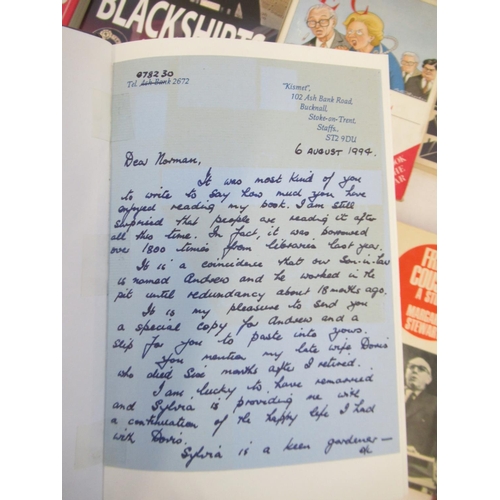 BLACKSHIRTS
078230
Tel. Ash Bank 2672
"Kismet",
102 Ash Bank Road,
Bucknall,
Stoke-on-Trent,
Staffs.,
ST2 9DU
6 AUGUST 1994.
Dear Norman,
It was most kind of you
to write to say how much you have
enjoyed reading my book. I am still
surprised that people are reading it after
all this time. In fact, it was borrowed
over 1800 times from libraries last year.
It is a coincidence that our Son-in-law
is named Andrew and he worked in the
pit until redundancy about 18 months ago.
It is my pleasure to send you
a special copy for Andrew and a
slip for you to paste into yours.
You mention my late wife Doris
who died six months after I retired.
I am lucky to have remarried
and Sylvia is providing me with
a continuation of the happy life I had
with Doris.
Sylvia is a keen gardener —
A ST
MARGA
STEWAR